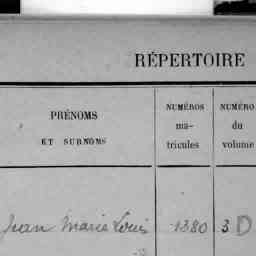 RÉPERTOIRE
PRÉNOMS
ET SURNOMS
NUMÉROS
ma-
tricules
NUMÉRO
du
volume
Jean Marie Louis 1380 3 D